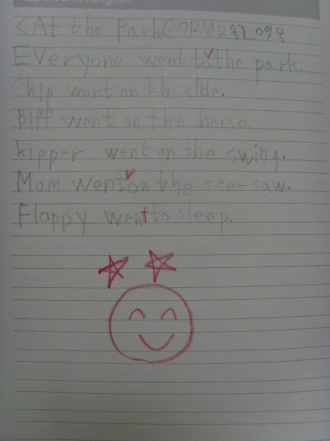 English
<At the Park
EVeryone went to the park.
Chip went on the slide.
Biff went on the horse
kipper went on the swing.
Mom went on the see-saw.
Floppy went to sleep.